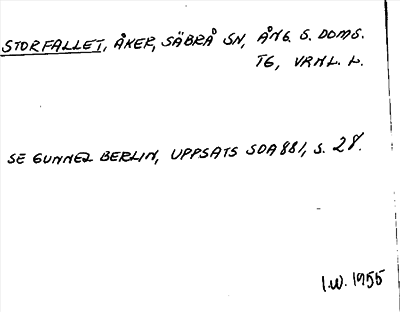 STORFALLET, ÅKER, SÄBRÅ SN, ÅNG. S. DOMS.
TG, VRNL. L.
SE GUNNEL BERLIN, UPPSATS SOA 881, S. 28.
I.W. 1955